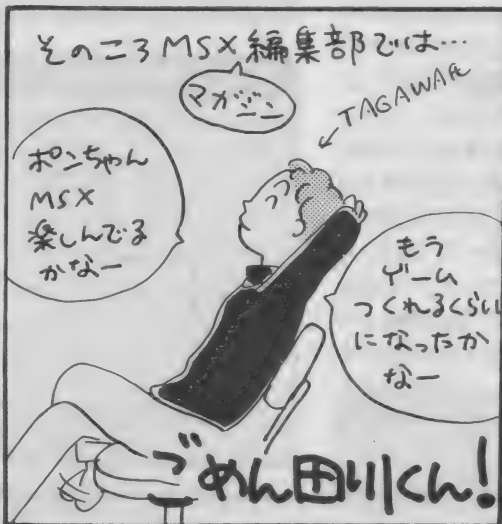 そのころMSX編集部では…
マガジン
TAGAWA氏
ポンちゃん
MSX
楽しんでる
かなー
もう
ゲーム
つくれるくらい
になったか
なー
ごめん田川くん!